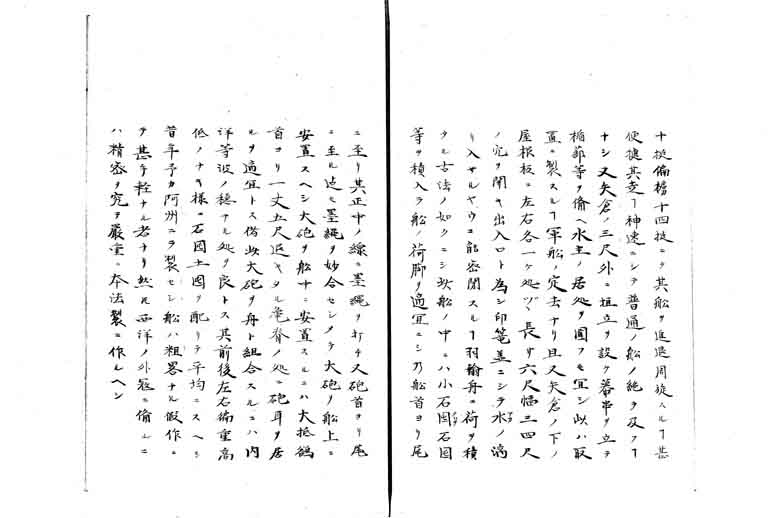 十挺偏櫓十四挺ニテ其船ヲ進退周旋スルヿ甚
便捷其走ヿ神速ニシテ普通ノ船ノ絶ヲ及フヿ
ナシ又矢倉ノ三尺外ニ垣立ヲ設ケ蕃串ヲ立テ
楯莭等ヲ備ヘ水主ノ居処ヲ圍フモ宜シ此ハ取
置ニ製スルヿ軍船ノ定法ナリ且又矢倉ノ下ノ
屋根板ニ左右各一ケ処ツヽ長サ六尺幅三四尺
ノ穴ヲ開キ出入口ト為シ印篭蓋ニシテ水ノ漏
リ入サルヤウニ能密閉スルヿ羽輸舟ニ荷ヲ積
タル古法ノ如クニシ此船ノ中ニハ小石囤石囤
等ヲ積入テ船ノ荷脚ヲ適宜ニシ乃船首ヨリ尾
ニ至リ其正中ノ線ニ墨縄ヲ打チ又砲首ヨリ尾
ニ至ル迠モ墨縄ヲ妙合セシメテ大砲ヲ船上ニ
安置スヘシ大砲ヲ船中ニ安置スルニハ大抵船
首ヨリ一丈五尺退キタル亀脊ノ処ニ砲耳ヲ居
ルヲ適宜トス偖此大砲ヲ舟ト組合スルニハ内
洋等波ノ穏ナル処ヲ良トス其前後左右偏重高
低ノナキ様ニ石囤土囤ヲ配リテ平均ニスヘシ
昔年予カ阿州ニテ製セシ船ハ粗畧ナル假作ニ
テ甚手軽ナル者ナリ然ルニ西洋ノ外冦ニ備ルニ
ハ精密ヲ究テ嚴重ニ本法製ニ作ルヘシ